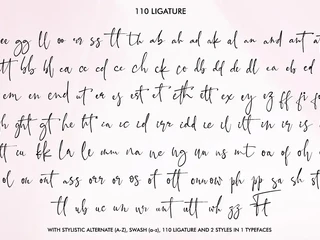 110 LIGATURE
ee gg ll oo or ss tt th ab ah ad ak al an and ant
tt bb bl ea cc ed ce ch ck co db dd de dl ea eb ed
em en end ut er es est et eth ett ex ey ez ff fi
ght gt he ht ia ic id irr idd ie il ilt in ir is
tt iu kk la le mm na ne ng nn ns mt oa of oh
ol on ont ass orr or os ot ott onnow ph pp sa sh st
tt ub uc un ur unt utt wh zz Ft
WITH STYLISTIC ALTERNATE (A-Z), SWASH (a-z), 110 LIGATURE AND 2 STYLES IN 1 TYPEFACES